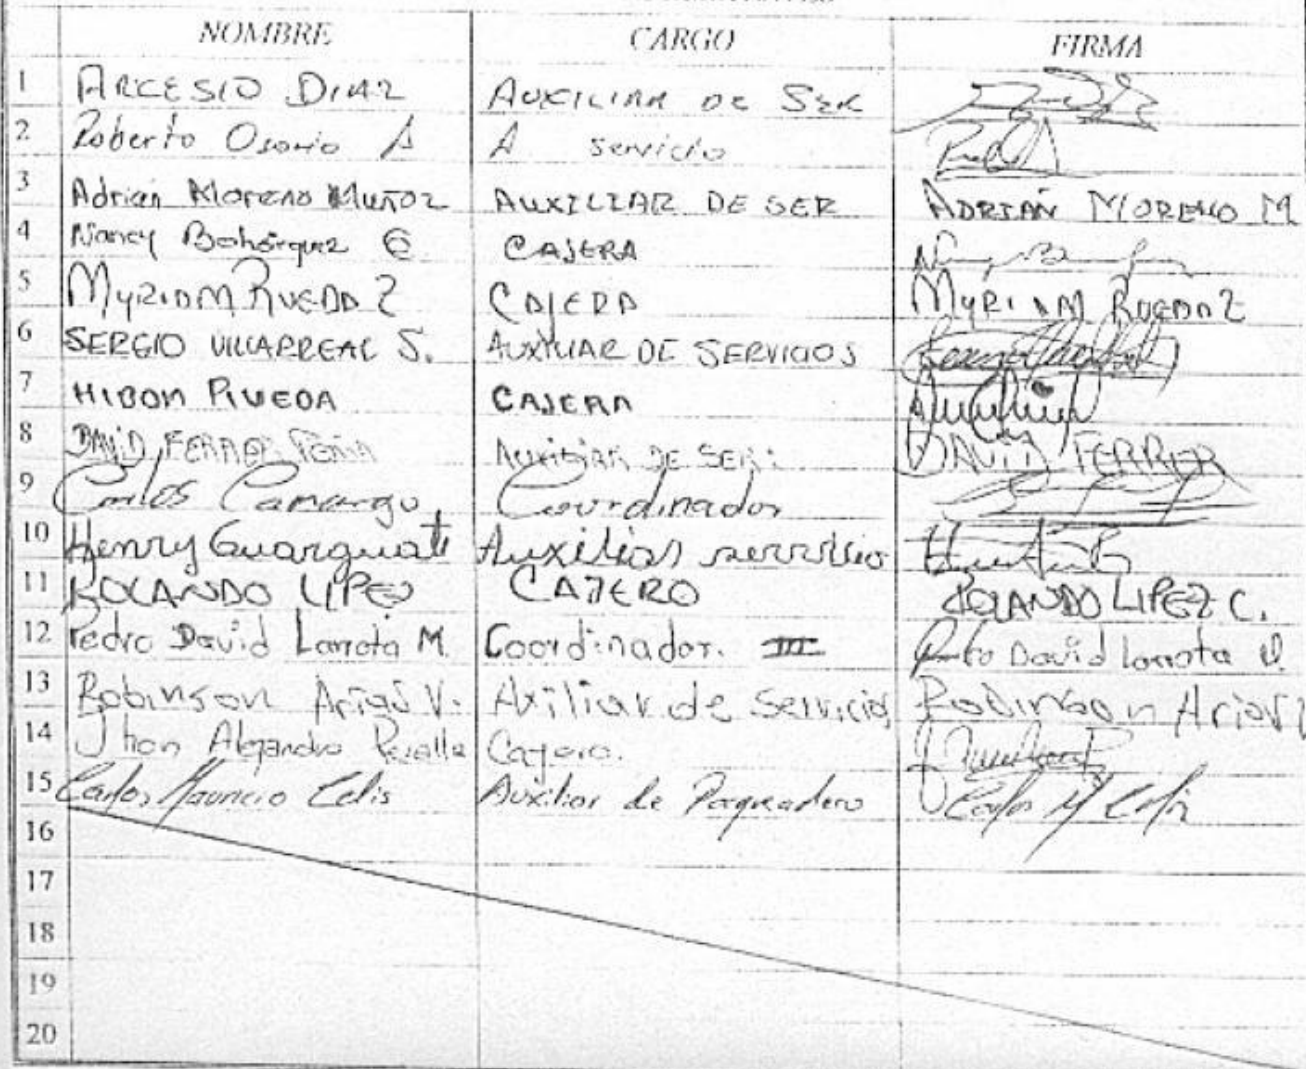 NOMBRE CARGO FIRMA
1 ARCESIO DIAZ AUXILIAR DE SER
2 Roberto Osorio A A servicio
3 Adrian Moreno Muñoz AUXILIAR DE SER ADRIAN MORENO M
4 Nancy Bohórquez E. CAJERA
5 MYRIAM RUEDA Z CAJERA MYRIAM RUEDA Z
6 SERGIO VILLARREAL S. AUXILIAR DE SERVICIOS
7 PINEDA CAJERA
8 DAVID FERRER AUXILIAR DE SER. DAVID FERRER
9 Carlos Camargo Coordinador
10 Henry Guarguati Auxiliar servicio
11 ROLANDO LIPEZ CAJERO ROLANDO LIPEZ C.
12 Pedro David Larrota M. Coordinador. III David Larrota
13 Robinson Arias V. Axiliar de Servicios Robinson Arias V
14 Jhon Alejandro Peralta Cajero.
15 Carlos Mauricio Celis Auxiliar de Parqueadero Carlos M Celis
16
17
18
19
20